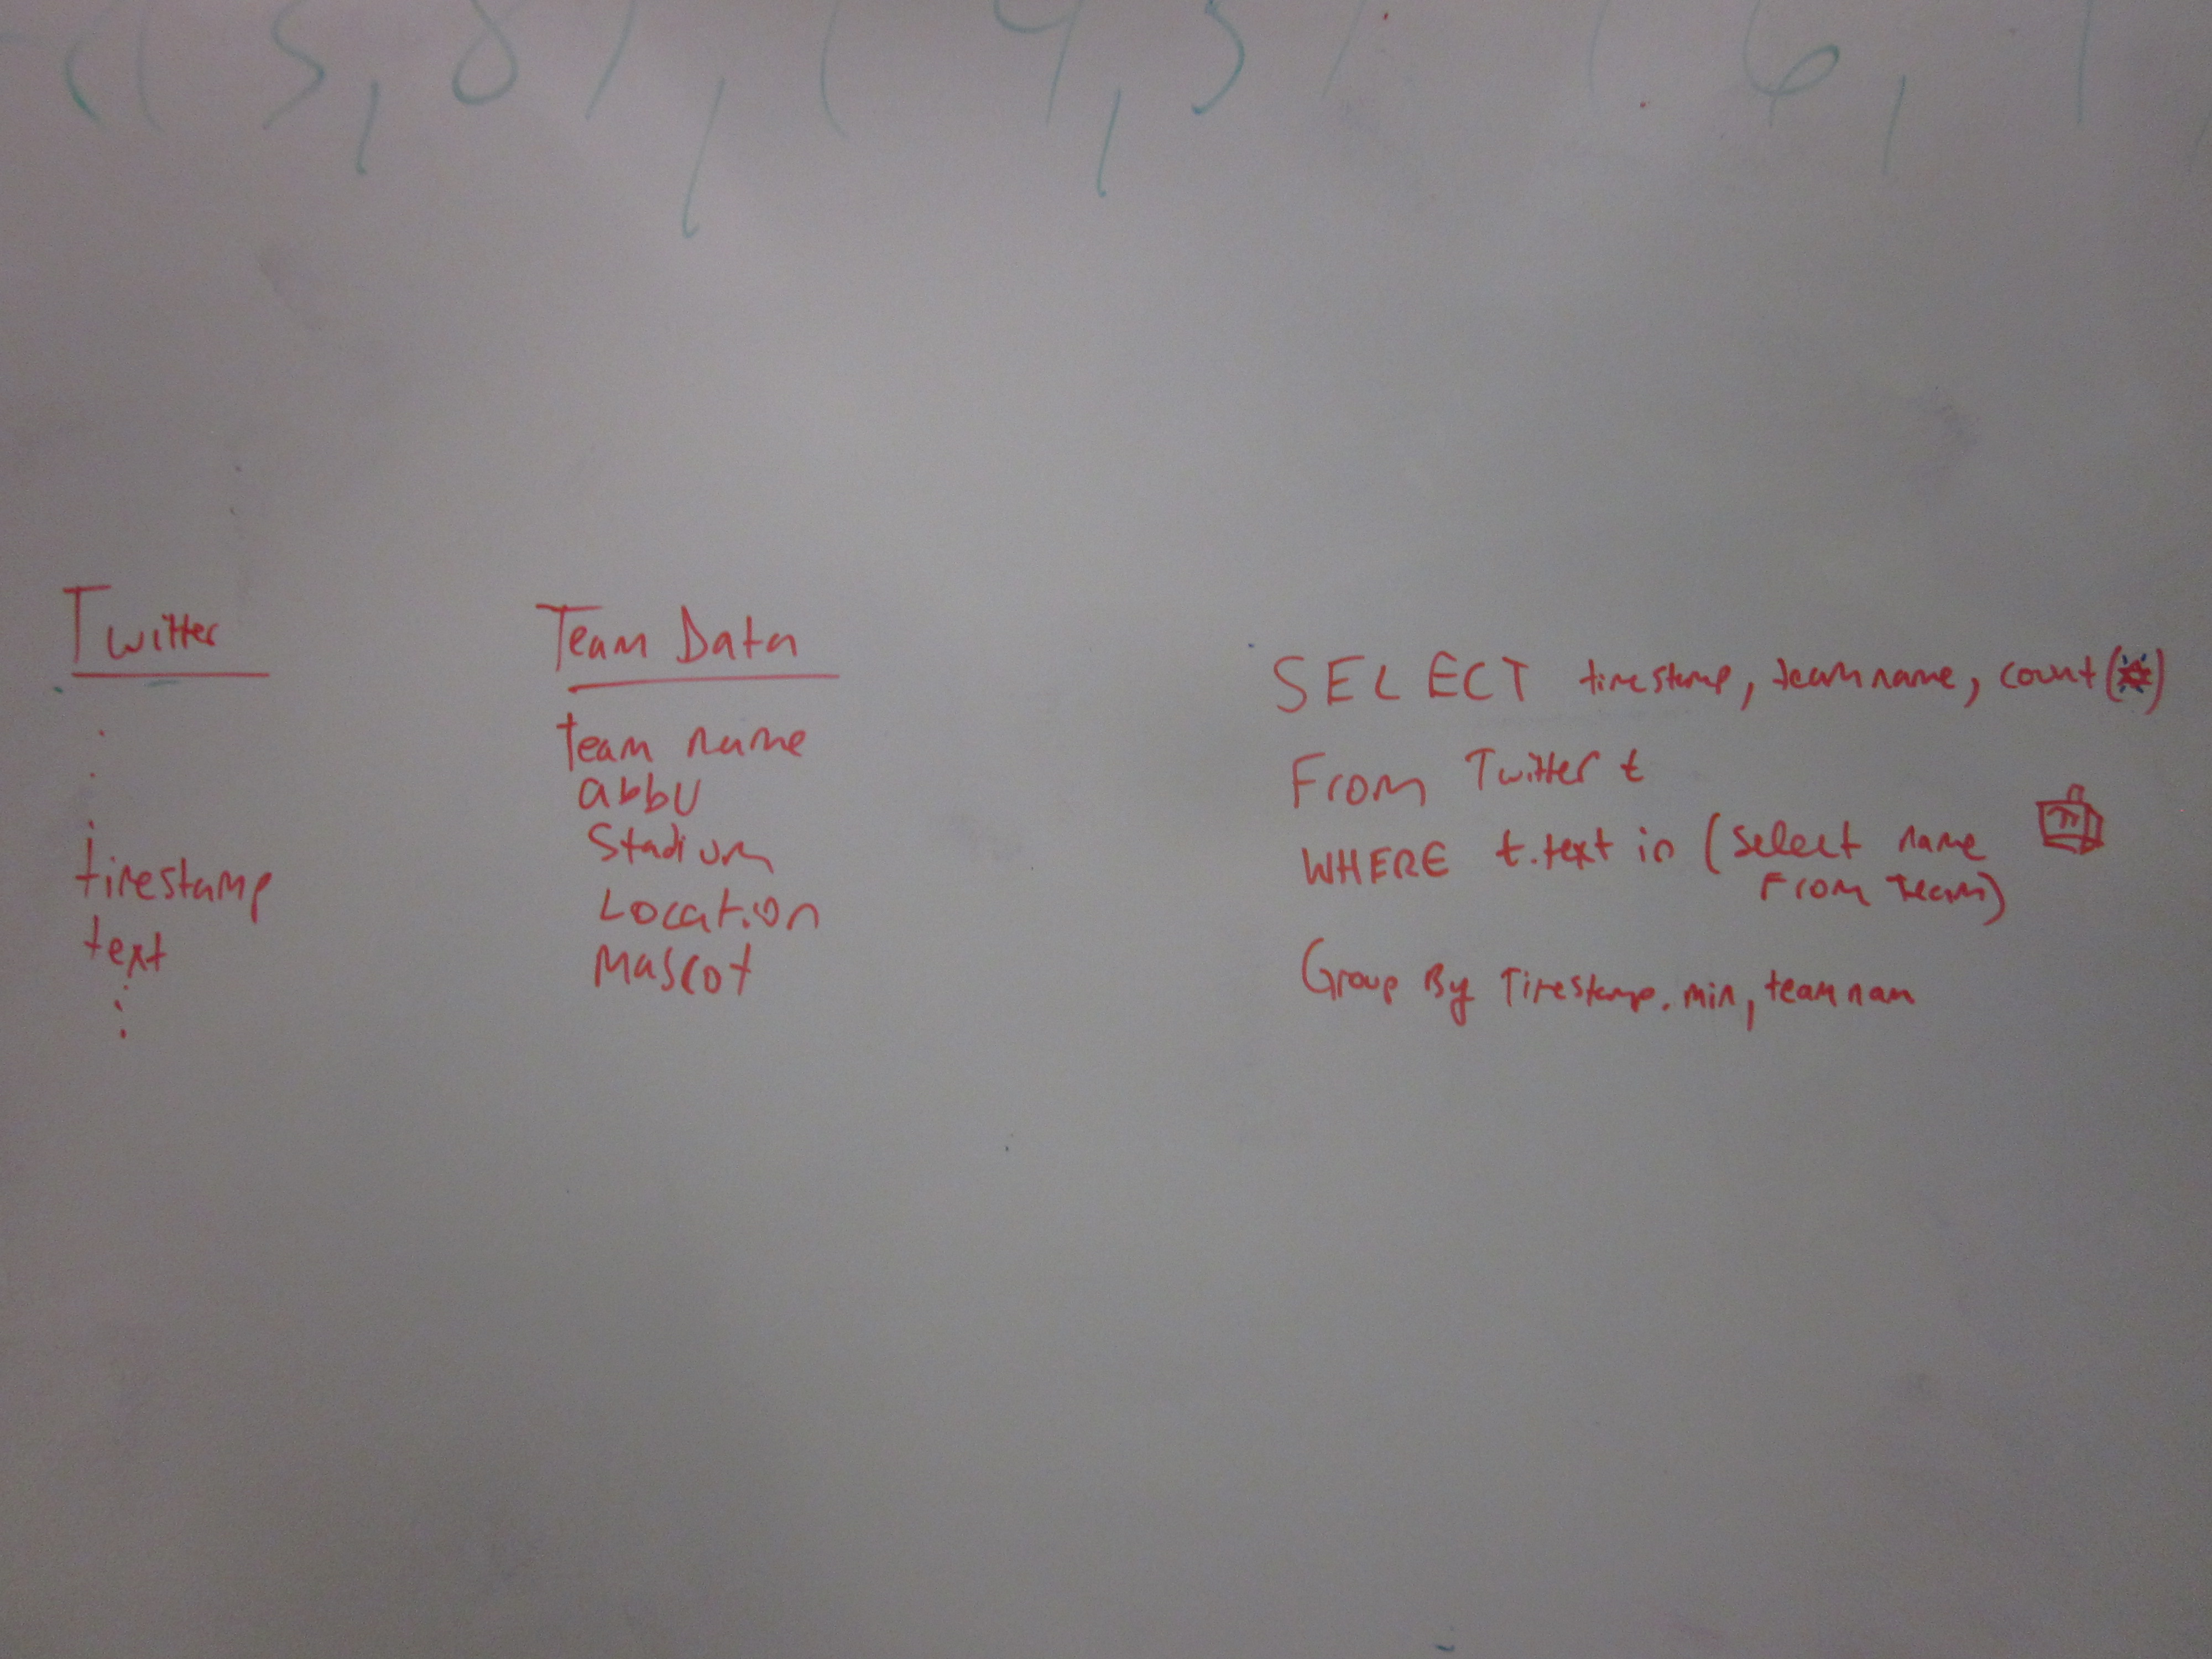 ((5,8),(9,5) (6,1
Twitter
timestamp
text
Team Data
team name
abbv
Stadium
Location
Mascot
SELECT timestamp, teamname, count(*)
From Twitter t
WHERE t.text in (select name
From Team)
Group By Timestamp.min, teamnam